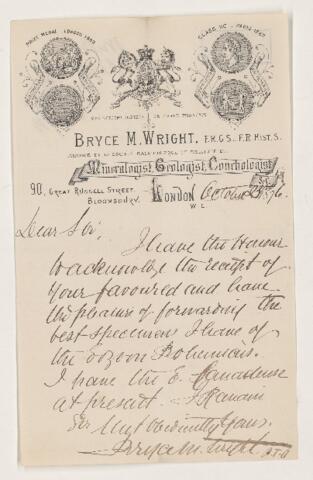 PRIZE MEDAL LONDON 1862
CLASS XIC PARIS 1867
BRYCE M. WRIGHT, F.R.G.S., F.R. HIST. S.
Mineralogist, Geologist, Conchologist
90, GREAT RUSSELL STREET,
BLOOMSBURY. LONDON October 76
W.C.
Dear Sir,
I have the Honour
to acknowledge the receipt of
your favoured and have
the pleasure of forwarding the
best specimens I have of
the Eozoon Bohemais.
I have the E. Canadense
at present I Remain
Sir Your Obediently Yours
Bryce M. Wright
P.T.O